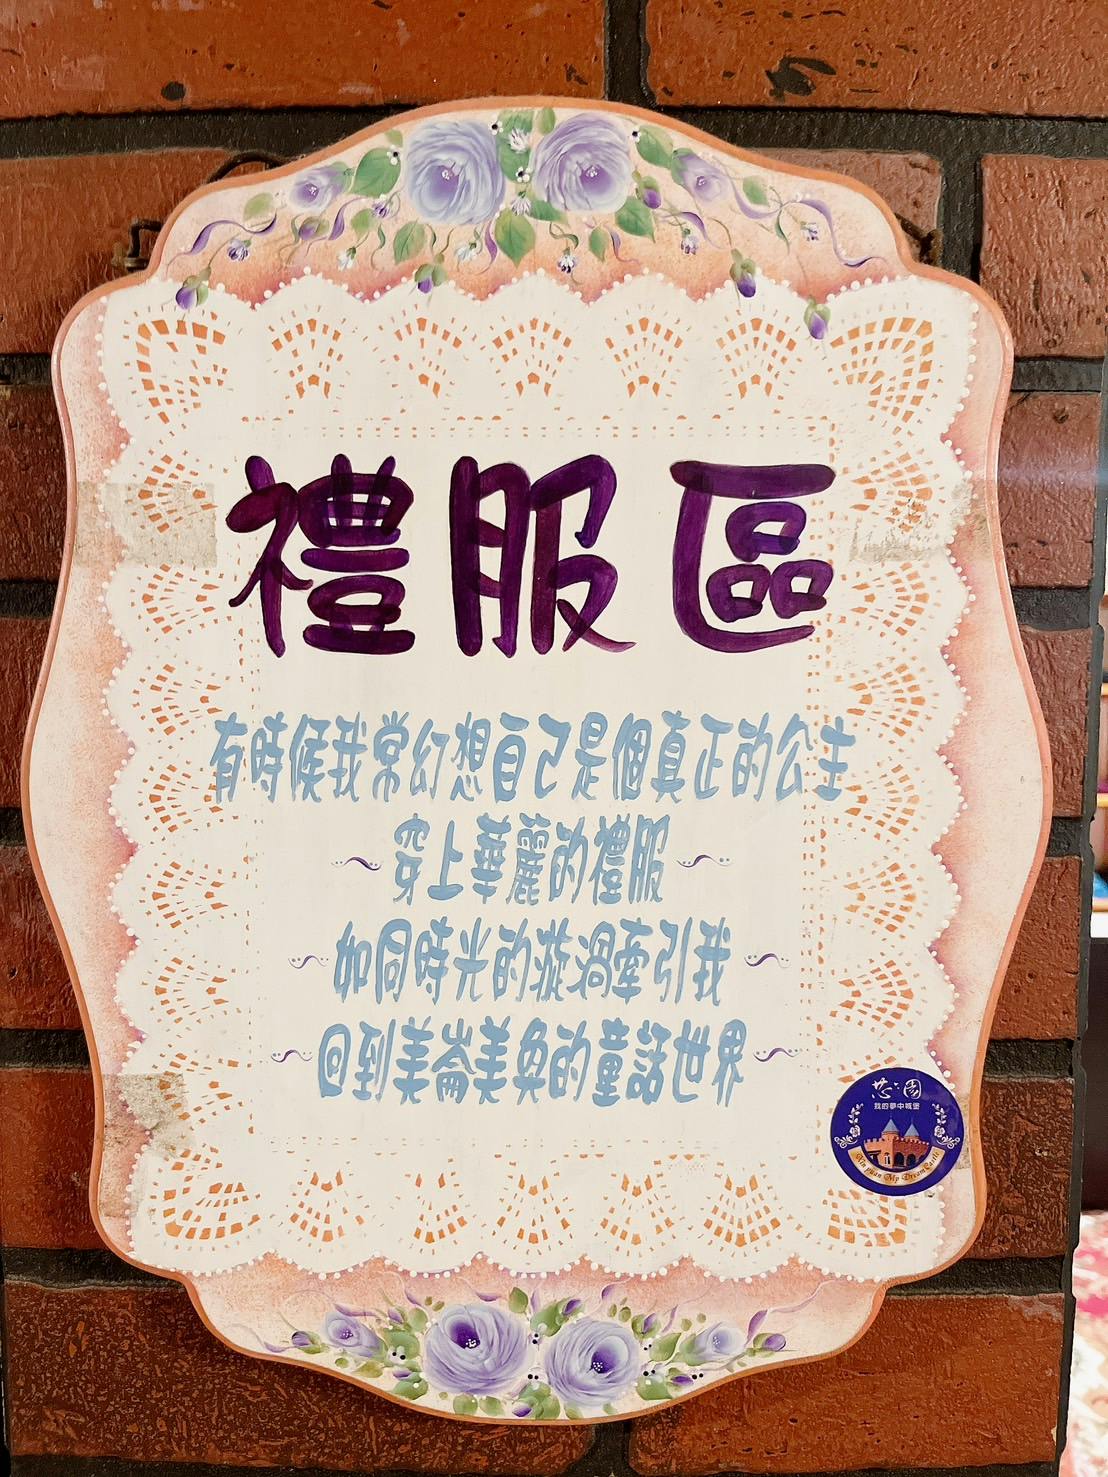 禮服區
有時候我常幻想自己是個真正的公主
~穿上華麗的禮服~
~如同時光的漩渦牽引我~
~回到美崙美奐的童話世界~
芯園
我的夢中城堡
Xin Yuan My Dream Castle